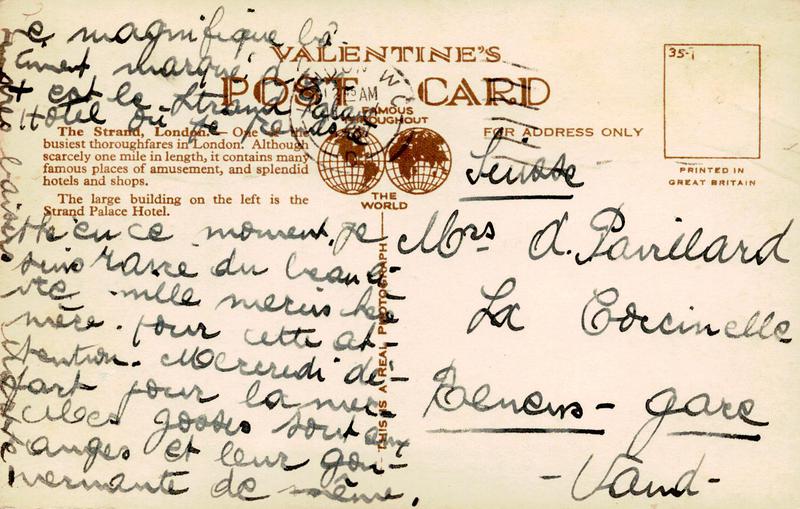 Ce magnifique bâ-
timent marqué d'
+ est le Strand Palace
Hôtel où je
VALENTINE'S
POST CARD
FAMOUS
THROUGHOUT
THE
WORLD
FOR ADDRESS ONLY
35-
PRINTED IN
GREAT BRITAIN
The Strand, London. One
busiest thoroughfares in London. Although
scarcely one mile in length, it contains many
famous places of amusement, and splendid
hotels and shops.
The large building on the left is the
Strand Palace Hotel.
THIS IS A REAL PHOTOGRAPH
en ce moment. Je
suis du beau
mille mercis
mère. pour cette at-
tention. Mercredi dé-
part pour la mer
les gosses sont
anges et leur gou-
vernante de même.
baisers
Suisse
Mrs A. Pavillard
La Coccinelle
gare
- Vaud -